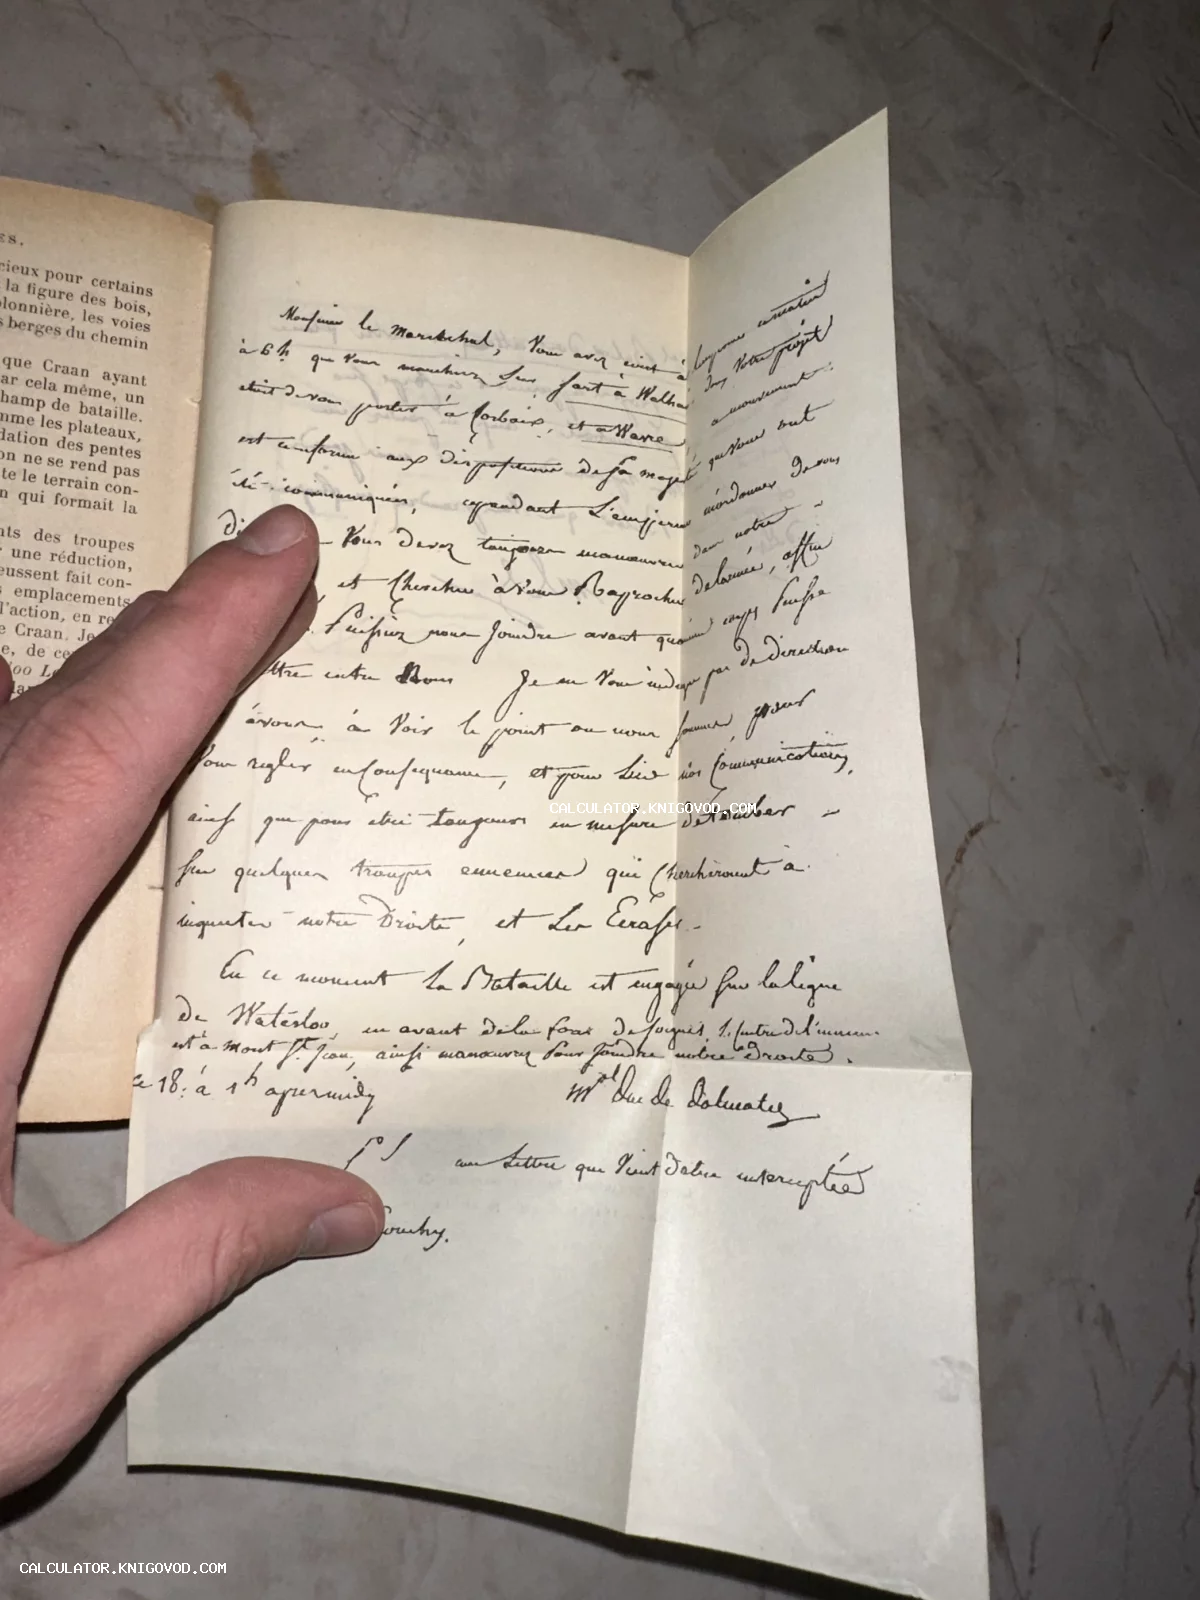 ES.
cieux pour certains
la figure des bois,
olonnière, les voies
s berges du chemin
que Craan ayant
ar cela même, un
champ de bataille.
mme les plateaux,
dation des pentes
on ne se rend pas
te le terrain con-
n qui formait la
nts des troupes
r une réduction,
eussent fait con-
s emplacements
l'action, en re
e Craan. Je
e, de ce
ioo L
lan
Monsieur le marechal, Vous avez écrit à ce matin
à 6h que vous marchiez sur Sart à Walhain votre projet
était de vous porter à Corbaix, et à Wavre, ce mouvement
est conforme aux dispositions de sa majesté qui vous ont
été communiquées, cependant L'empereur m'ordonne de vous
di Vous devez toujours manœuvrer dans notre
et Chercher à vous Raprocher de l'armée, affin
Puissiez nous Joindre avant qu'aucun corps Puisse
ttre entre Nous Je ne Vous indique pas de direction
à vous à Voir le point ou nous sommes, pour
Vous regler en Conséquence, et pour Lier nos Communications,
ainsi que pour être toujours en mesure de tomber
sur quelques troupes ennemies qui Chercheraient à
inquieter notre Droite, et Les Ecraser.
En ce moment la Bataille est engagée sur la ligne
de Waterloo, en avant de la foret de soignes, le centre de l'ennemi
est à Mont St Jean, ainsi manœuvrez Pour Joindre notre Droite.
Le 18: à 1h apresmidy Mal duc de Dalmatie
PS une Lettre qui Vient d'être interceptée
ouchy.
CALCULATOR.KNIGOVOD.COM
CALCULATOR.KNIGOVOD.COM